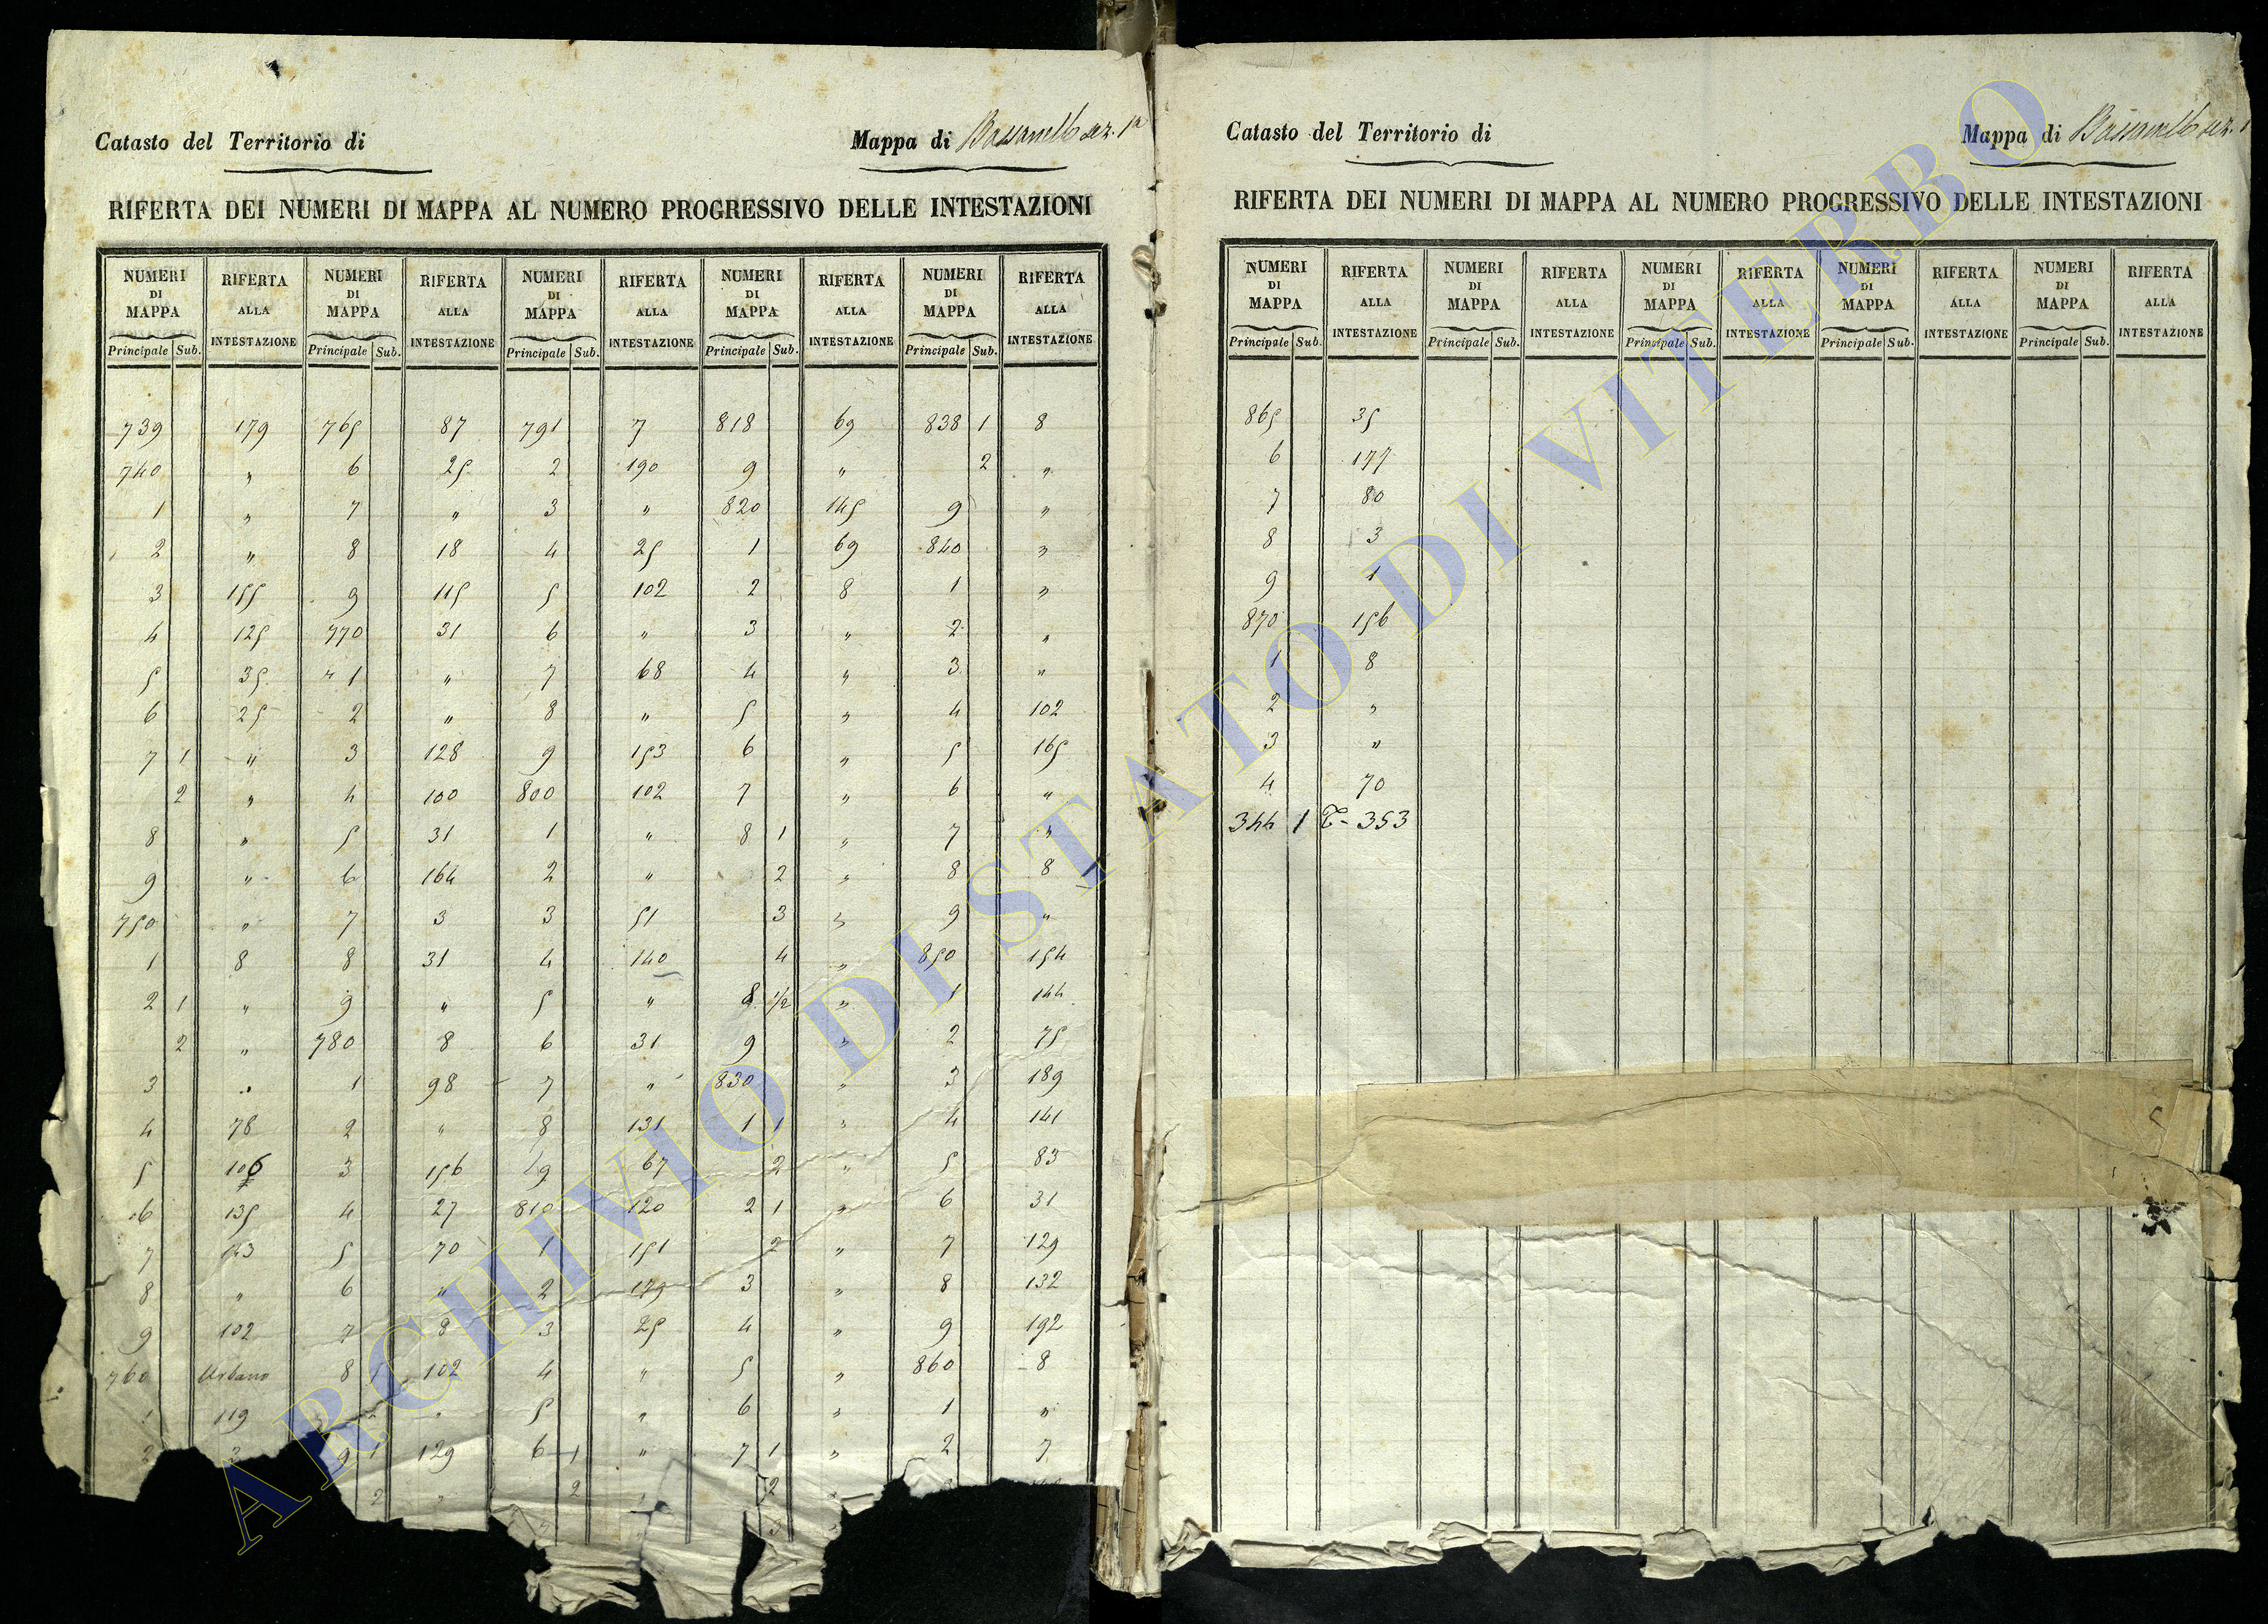 Catasto del Territorio di
Mappa di Bassanello sez. 1a
RIFERTA DEI NUMERI DI MAPPA AL NUMERO PROGRESSIVO DELLE INTESTAZIONI
NUMERI DI MAPPA RIFERTA ALLA INTESTAZIONE NUMERI DI MAPPA RIFERTA ALLA INTESTAZIONE NUMERI DI MAPPA RIFERTA ALLA INTESTAZIONE NUMERI DI MAPPA RIFERTA ALLA INTESTAZIONE NUMERI DI MAPPA RIFERTA ALLA INTESTAZIONE
Principale Sub. Principale Sub. Principale Sub. Principale Sub. Principale Sub.
739 179 765 87 791 7 818 69 838 1 8
740 " 6 25 2 190 9 " 2 "
1 " 7 " 3 " 820 145 9 "
2 " 8 18 4 25 1 69 840 "
3 155 9 115 5 102 2 8 1 "
4 125 770 31 6 " 3 " 2 "
5 35 1 " 7 68 4 " 3 "
6 25 2 " 8 " 5 " 4 102
7 1 " 3 128 9 153 6 " 5 165
2 " 4 100 800 102 7 " 6 "
8 " 5 31 1 " 8 1 " 7 "
9 " 6 164 2 " 2 " 8 8
750 " 7 3 3 51 3 " 9 "
1 8 8 31 4 140 4 " 850 154
2 1 " 9 " 5 " 8 1/2 " 1 144
2 " 780 8 6 31 9 " 2 75
3 " 1 98 7 " 830 " 3 189
4 78 2 " 8 131 1 1 " 4 141
5 106 3 156 9 67 2 " 5 83
6 135 4 27 810 120 2 1 " 6 31
7 143 5 70 1 151 2 " 7 129
8 " 6 " 2 179 3 " 8 132
9 102 7 8 3 25 4 " 9 192
760 Urbano 8 1 102 4 " 5 " 860 8
1 119 2 " 5 " 6 " 1 "
2 9 1 129 6 1 " 7 1 " 2 7
2 " 2 " 2
3
Catasto del Territorio di
Mappa di Bassanello sez. 1
RIFERTA DEI NUMERI DI MAPPA AL NUMERO PROGRESSIVO DELLE INTESTAZIONI
NUMERI DI MAPPA RIFERTA ALLA INTESTAZIONE NUMERI DI MAPPA RIFERTA ALLA INTESTAZIONE NUMERI DI MAPPA RIFERTA ALLA INTESTAZIONE NUMERI DI MAPPA RIFERTA ALLA INTESTAZIONE NUMERI DI MAPPA RIFERTA ALLA INTESTAZIONE
Principale Sub. Principale Sub. Principale Sub. Principale Sub. Principale Sub.
865 35
6 177
7 80
8 3
9 1
870 156
1 8
2 "
3 "
4 70
344 1 T-353
ARCHIVIO DI STATO DI VITERBO